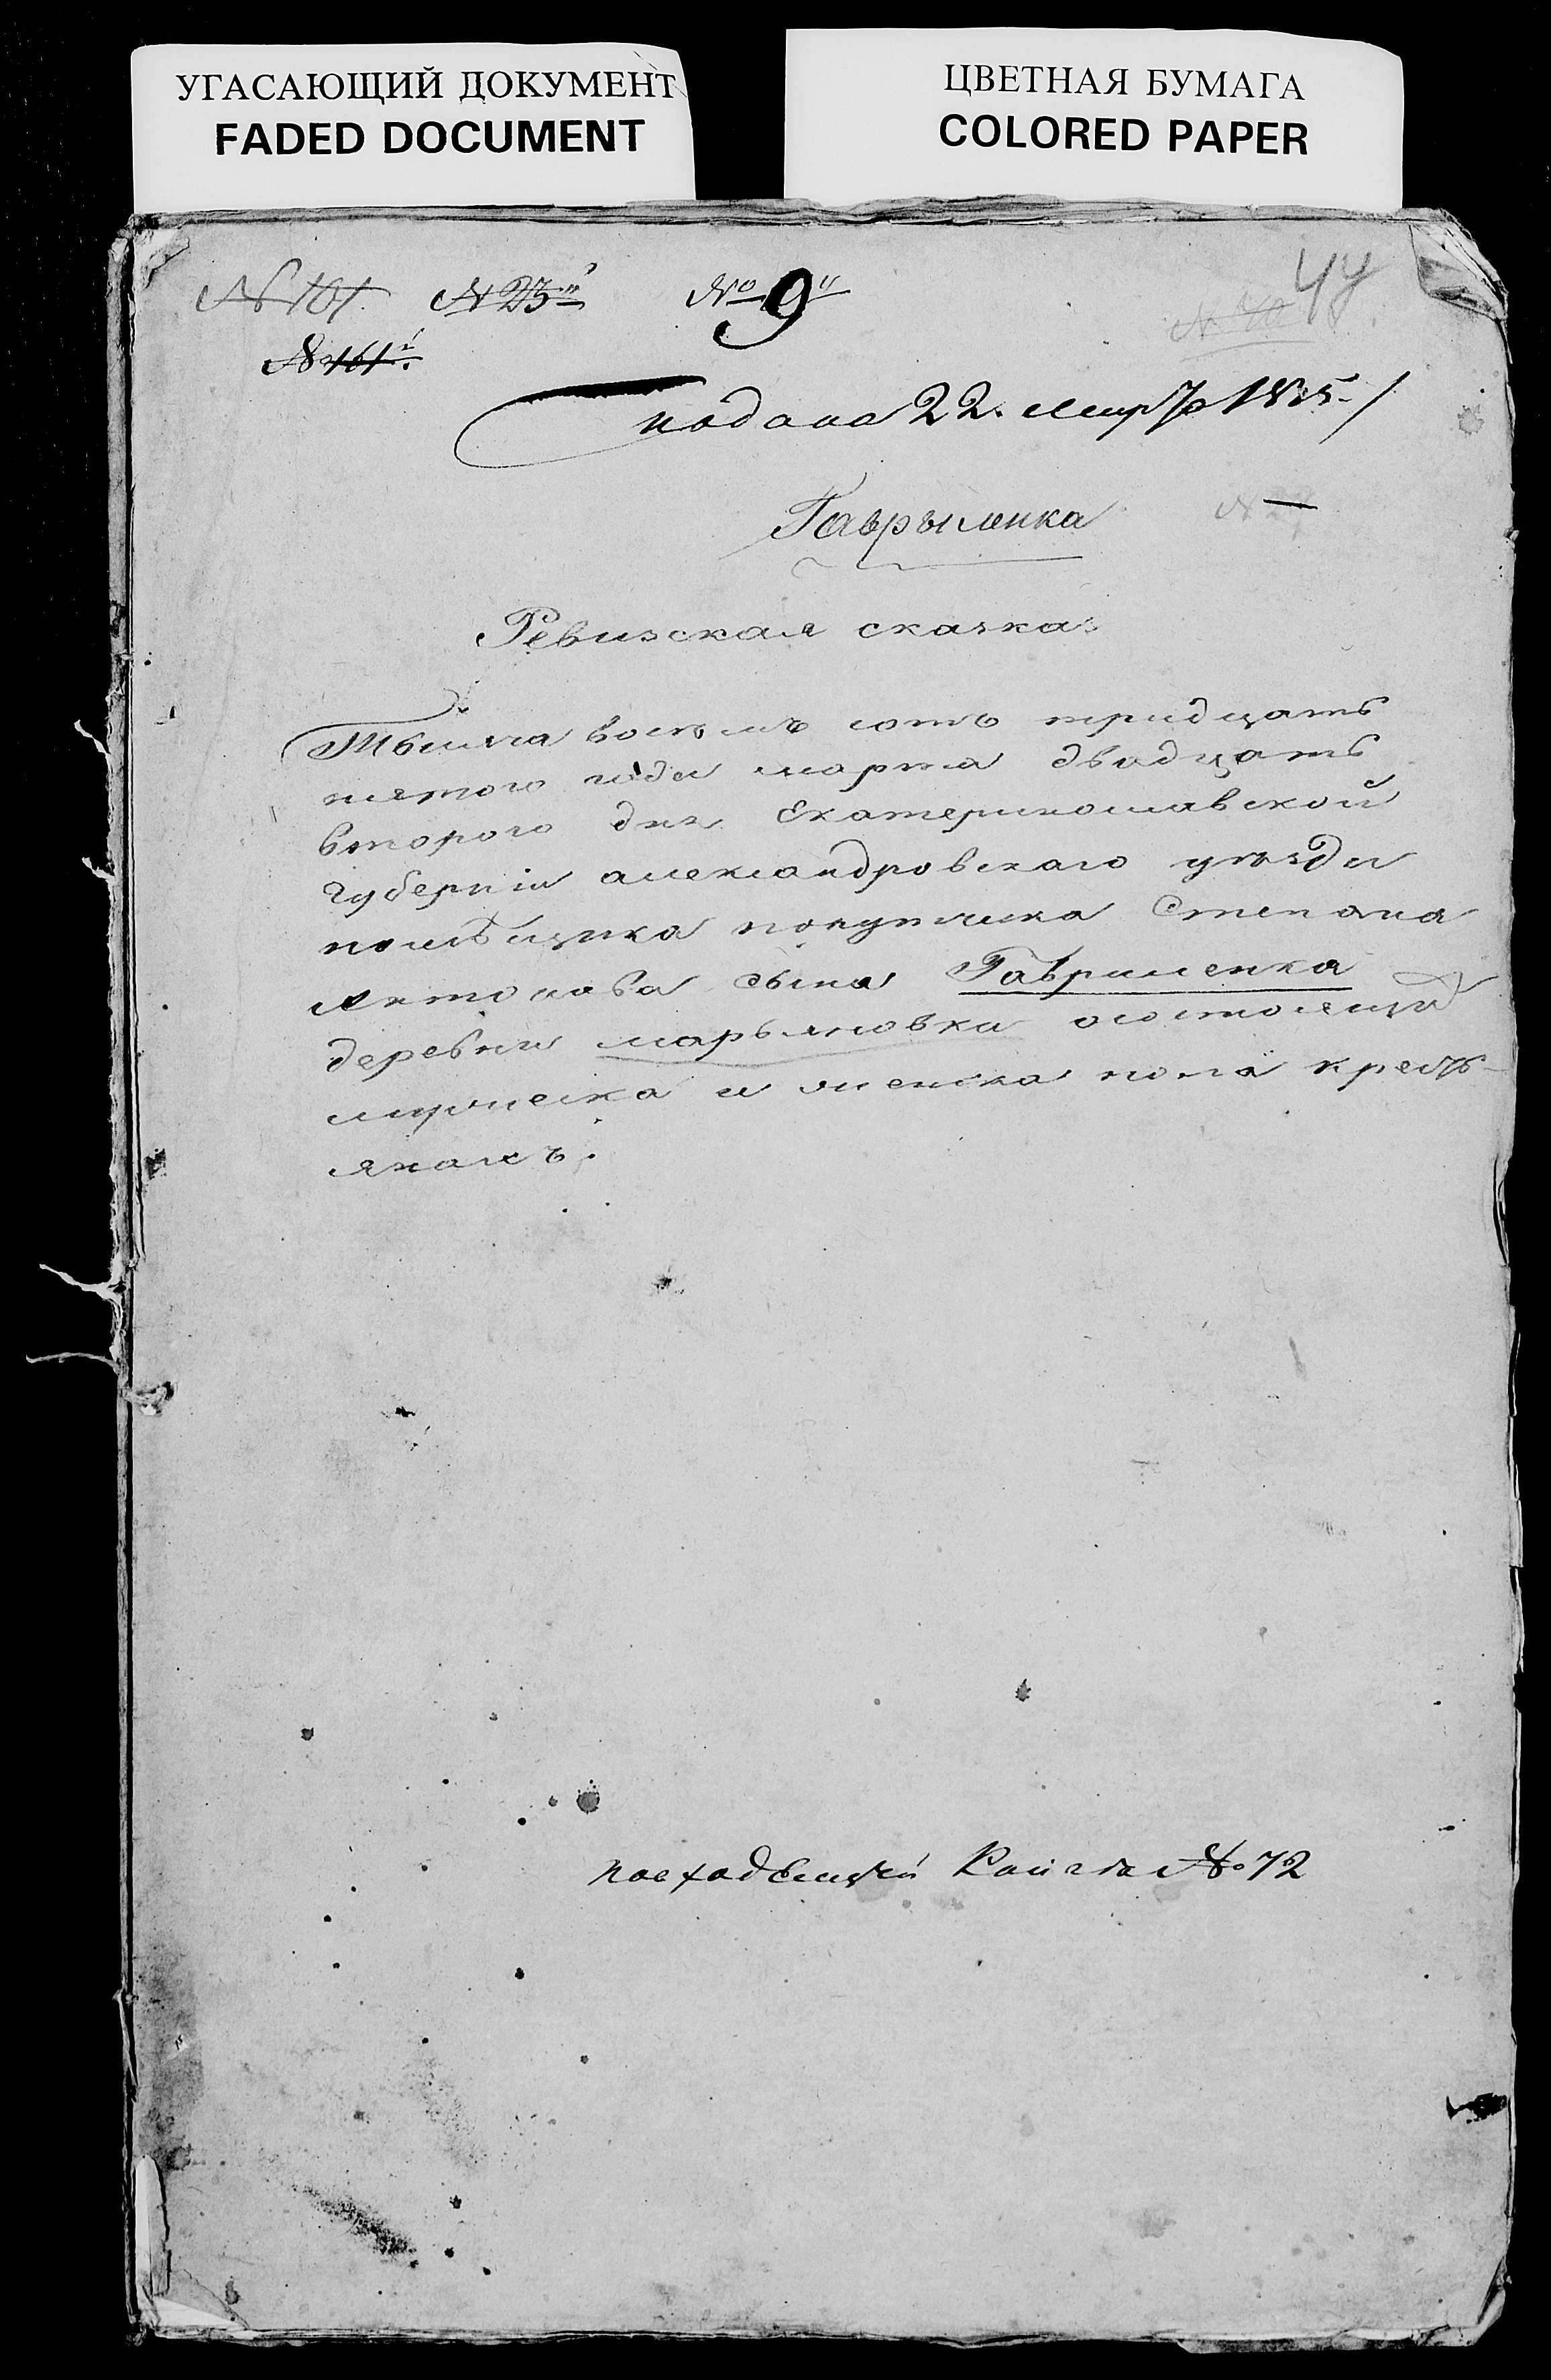 УГАСАЮЩИЙ ДОКУМЕНТ
FADED DOCUMENT
ЦВЕТНАЯ БУМАГА
COLORED PAPER
№ 161. № 23й № 9й 44
№ 161й.
подана 22. Марта 1835.
Гаврыленка
Ревизская сказка
Тысяча восъмъ сотъ тридцать
пятого года марта двадцать
второго дня Екатеринославской
губерніи александровскаго уѣзда
помѣщика порутчика Степана
Антонова сына Гавриленка
деревни марьяновки осостоящи
мужеска и женска пола кресть-
янахъ.
Книга № 72